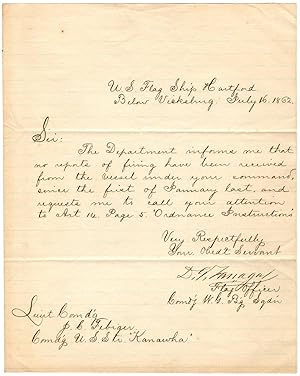 U. S. Flag Ship Hartford
Below Vicksburg July 16. 1862.
Sir:
The Department informs me that
no reports of firing have been received
from the vessel under your command,
since the first of January last, and
requests me to call your attention
to Art 14. Page 5 "Ordnance Instructions"
Very Respectfully
Your Obedt Servant
D. G. Farragut
Flag Officer
Comdg W. G. Blg Sqdn
Lieut Comdg
J. C. Febiger
Comdg U. S. Str. "Kanawha"